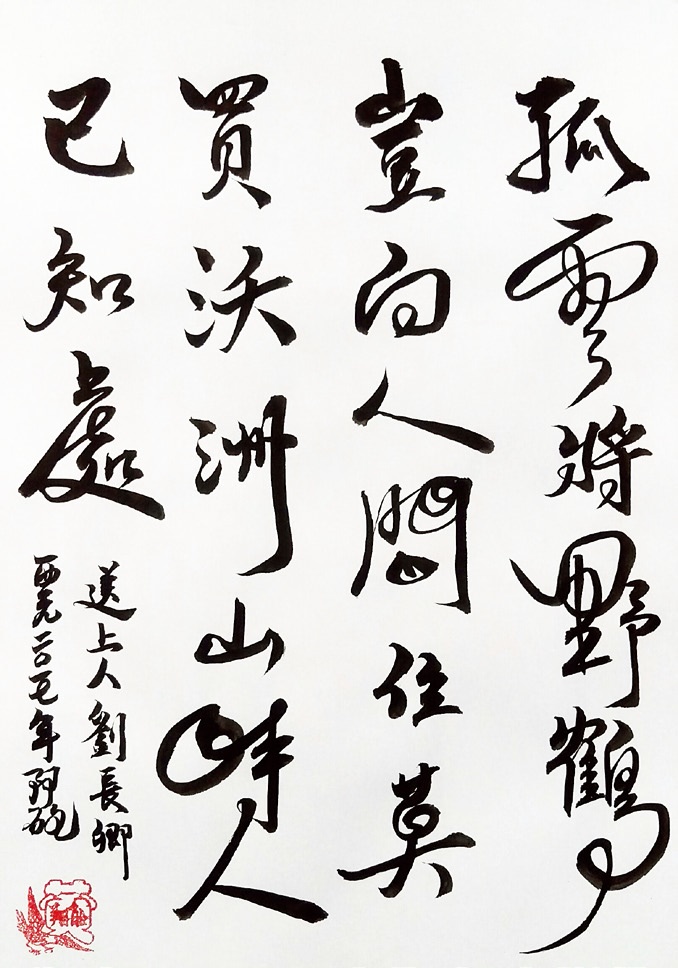 孤雲將野鶴
豈向人間住莫
買沃洲山時人
已知處
送上人劉長卿
西元二〇一七年